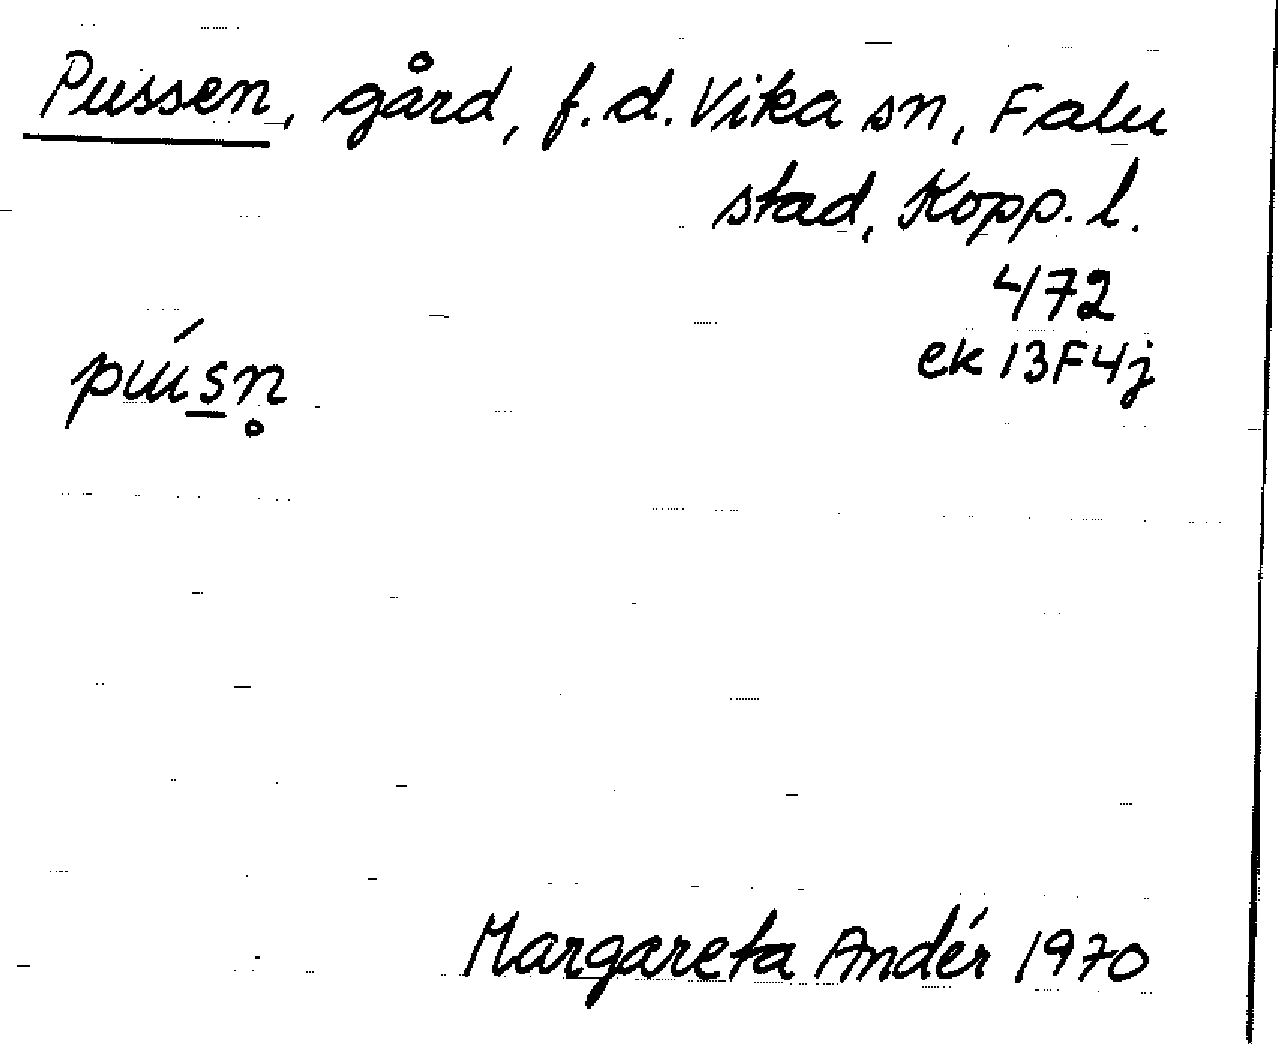 Pussen, gård, f.d. Vika sn, Falu
stad, Kopp. l.
472
ek 13F4j
púsn̥
Margareta Andér 1970